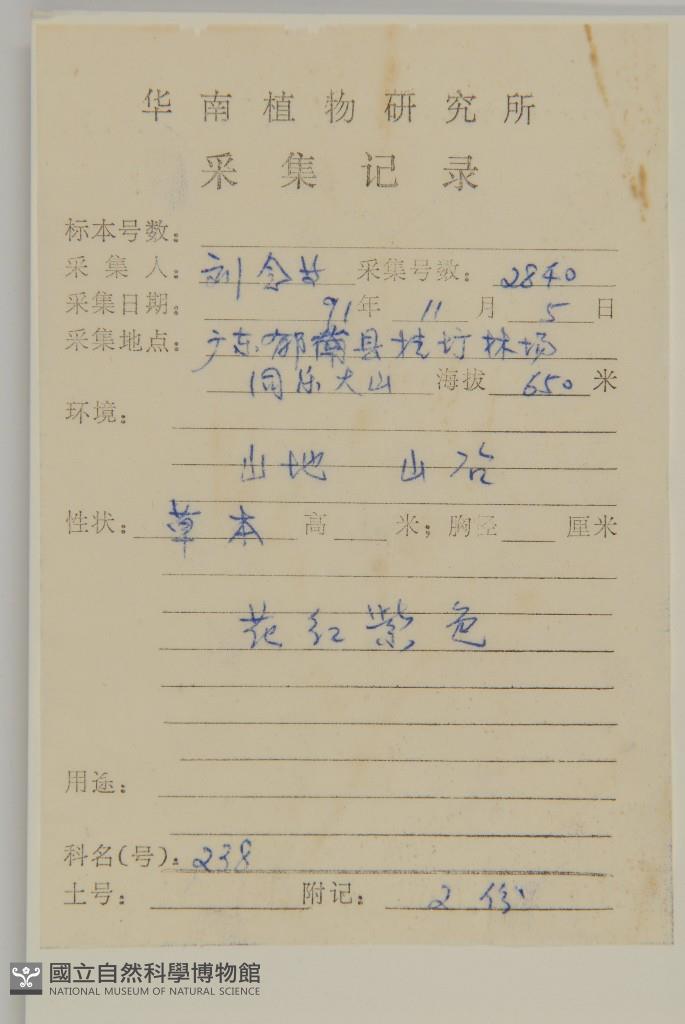 华南植物研究所
采集记录
标本号数:
采集人: 刘念 采集号数: 2840
采集日期: 91年 11月 5日
采集地点: 广东郁南县桂圩林场
同乐大山 海拔 650 米
环境:
山地 山谷
性状: 草本 高 米; 胸径 厘米
花红紫色
用途:
科名(号): 238
土号: 附记: 2份
國立自然科學博物館
NATIONAL MUSEUM OF NATURAL SCIENCE